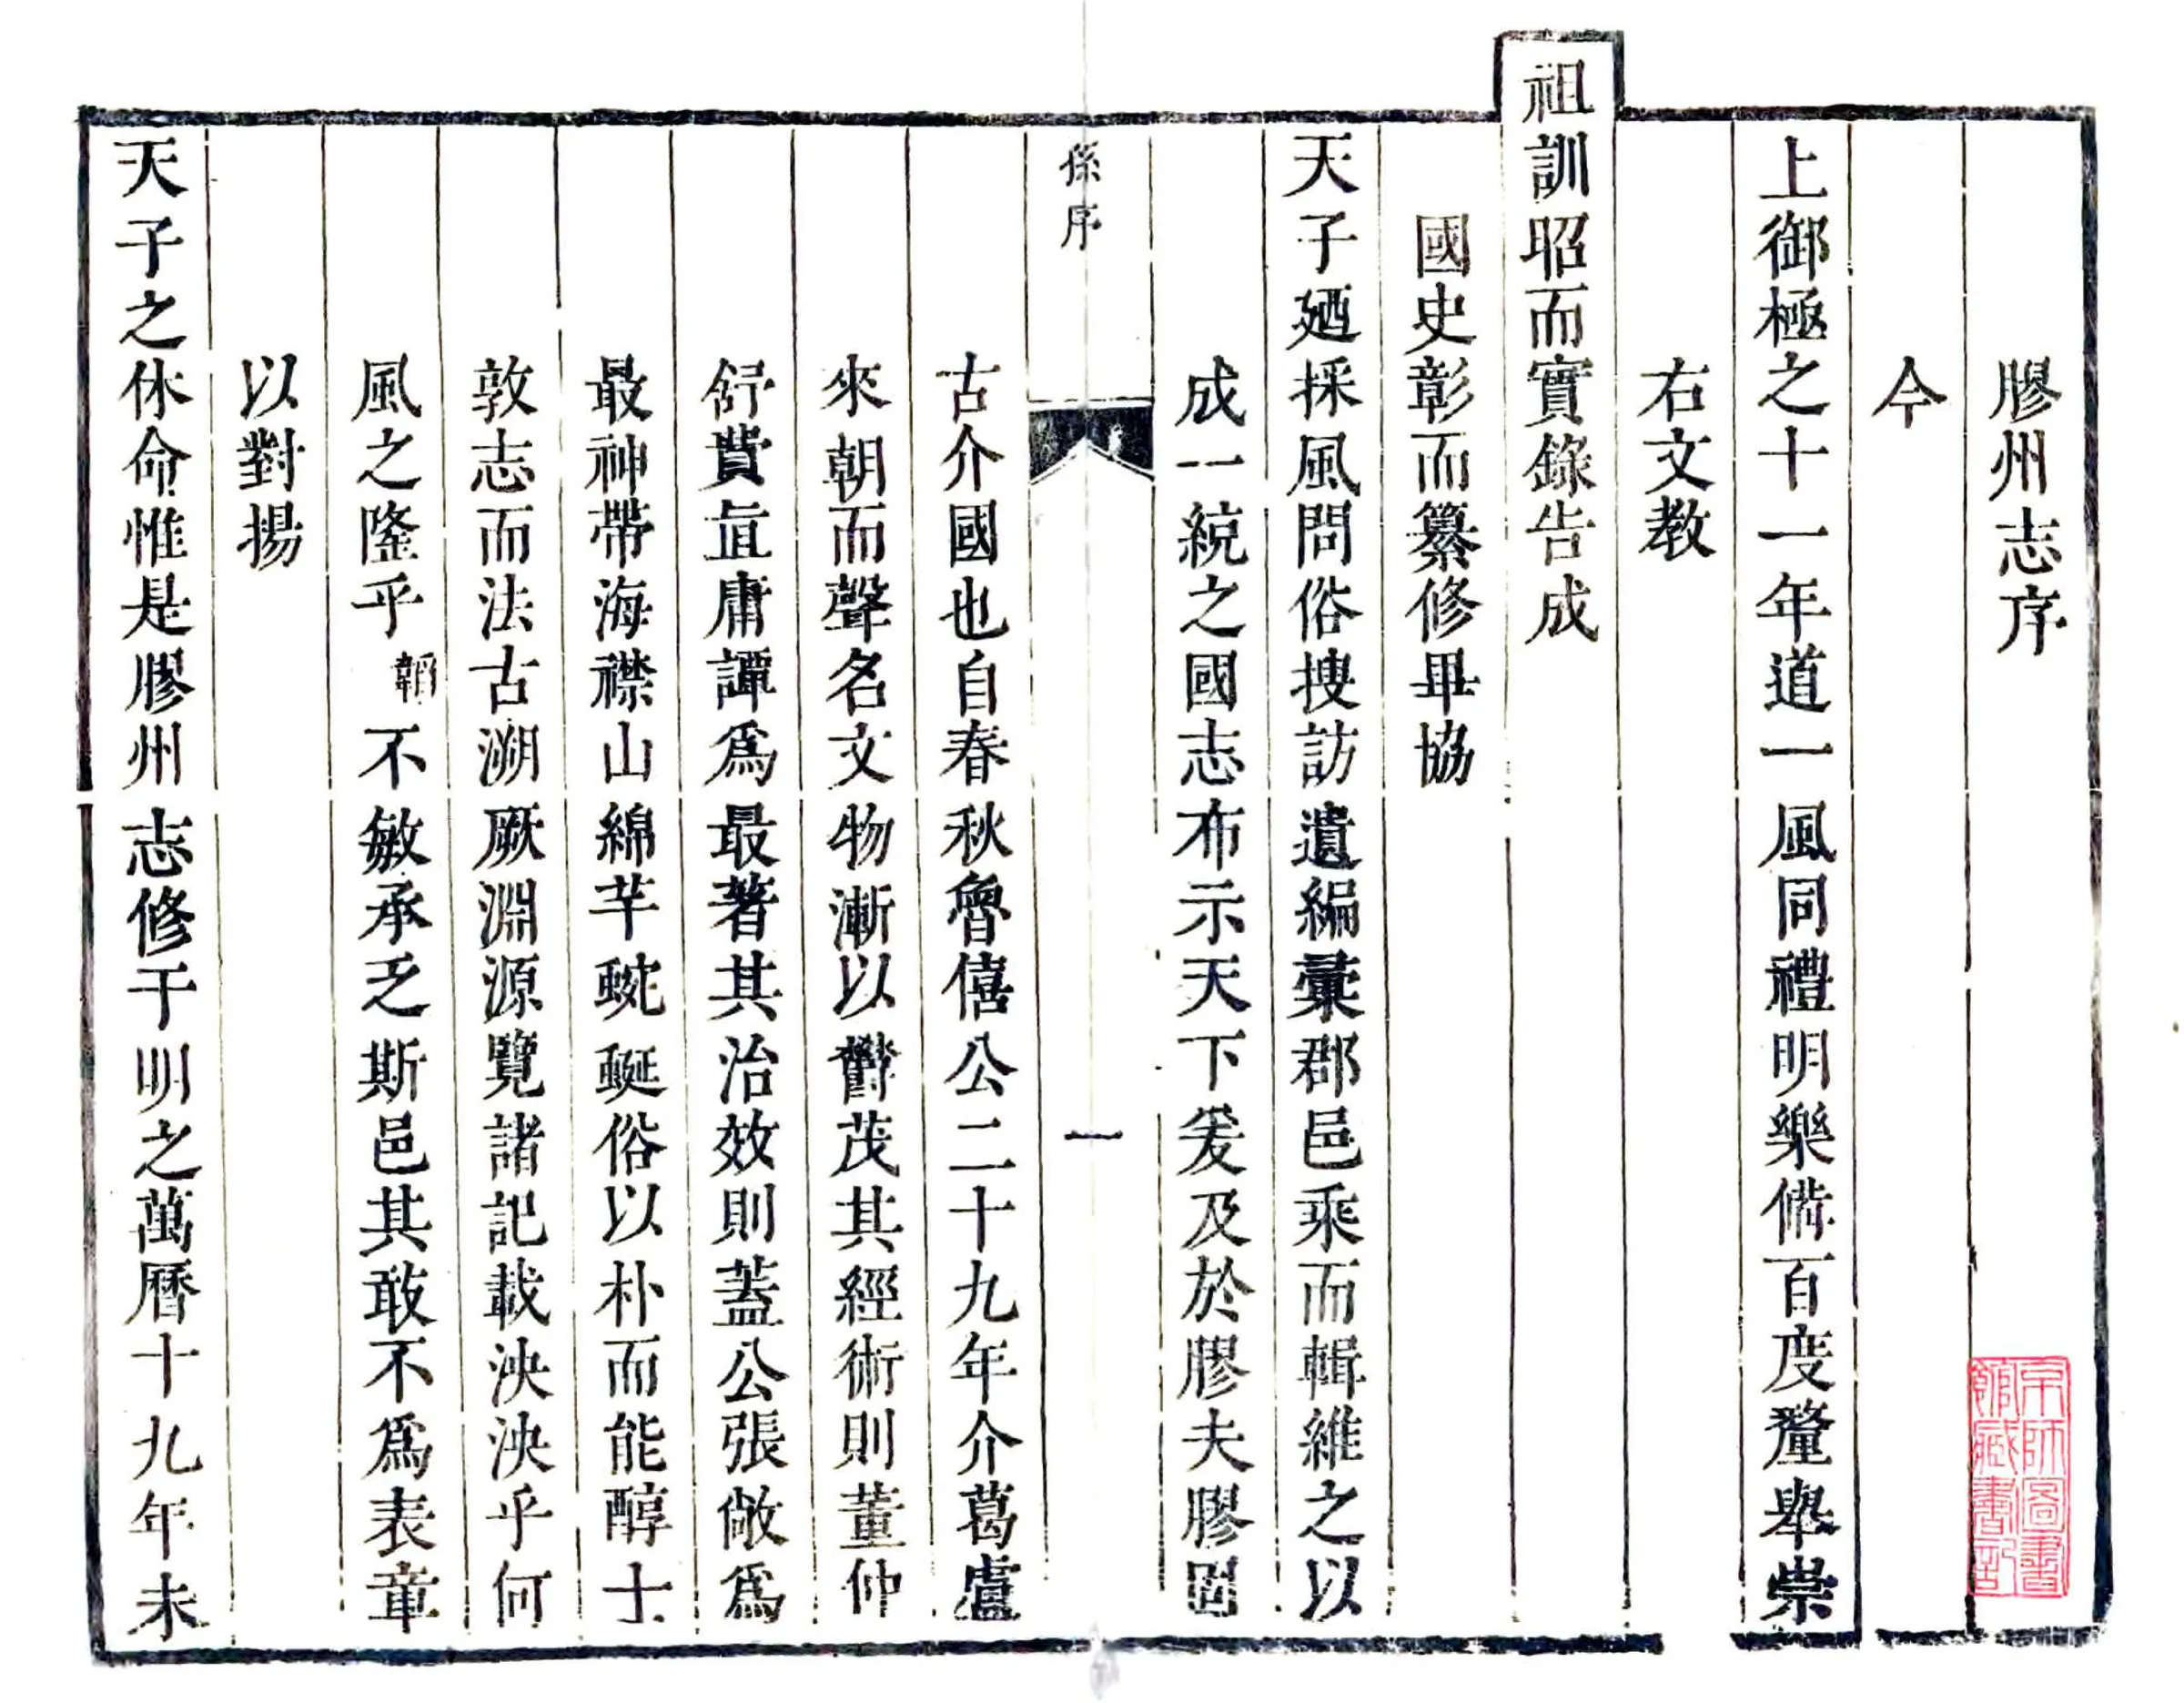 膠州志序
今
上御極之十一年道一風同禮明樂備百度釐舉崇
右文教
祖訓昭而實錄告成
國史彰而纂修畢協
天子廼採風問俗搜訪遺編彙郡邑乘而輯維之以
成一統之國志布示天下爰及於膠夫膠固
孫序
一
古介國也自春秋魯僖公二十九年介葛盧
來朝而聲名文物漸以欝茂其經術則董仲
舒費直庸譚爲最著其治效則蓋公張敞爲
最神帶海襟山綿芊蜿蜒俗以朴而能醇士
敦志而法古溯厥淵源覽諸記載泱泱乎何
風之隆乎韜不敏承乏斯邑其敢不爲表章
以對揚
天子之休命惟是膠州志修于明之萬曆十九年未
京師圖書
館藏書記